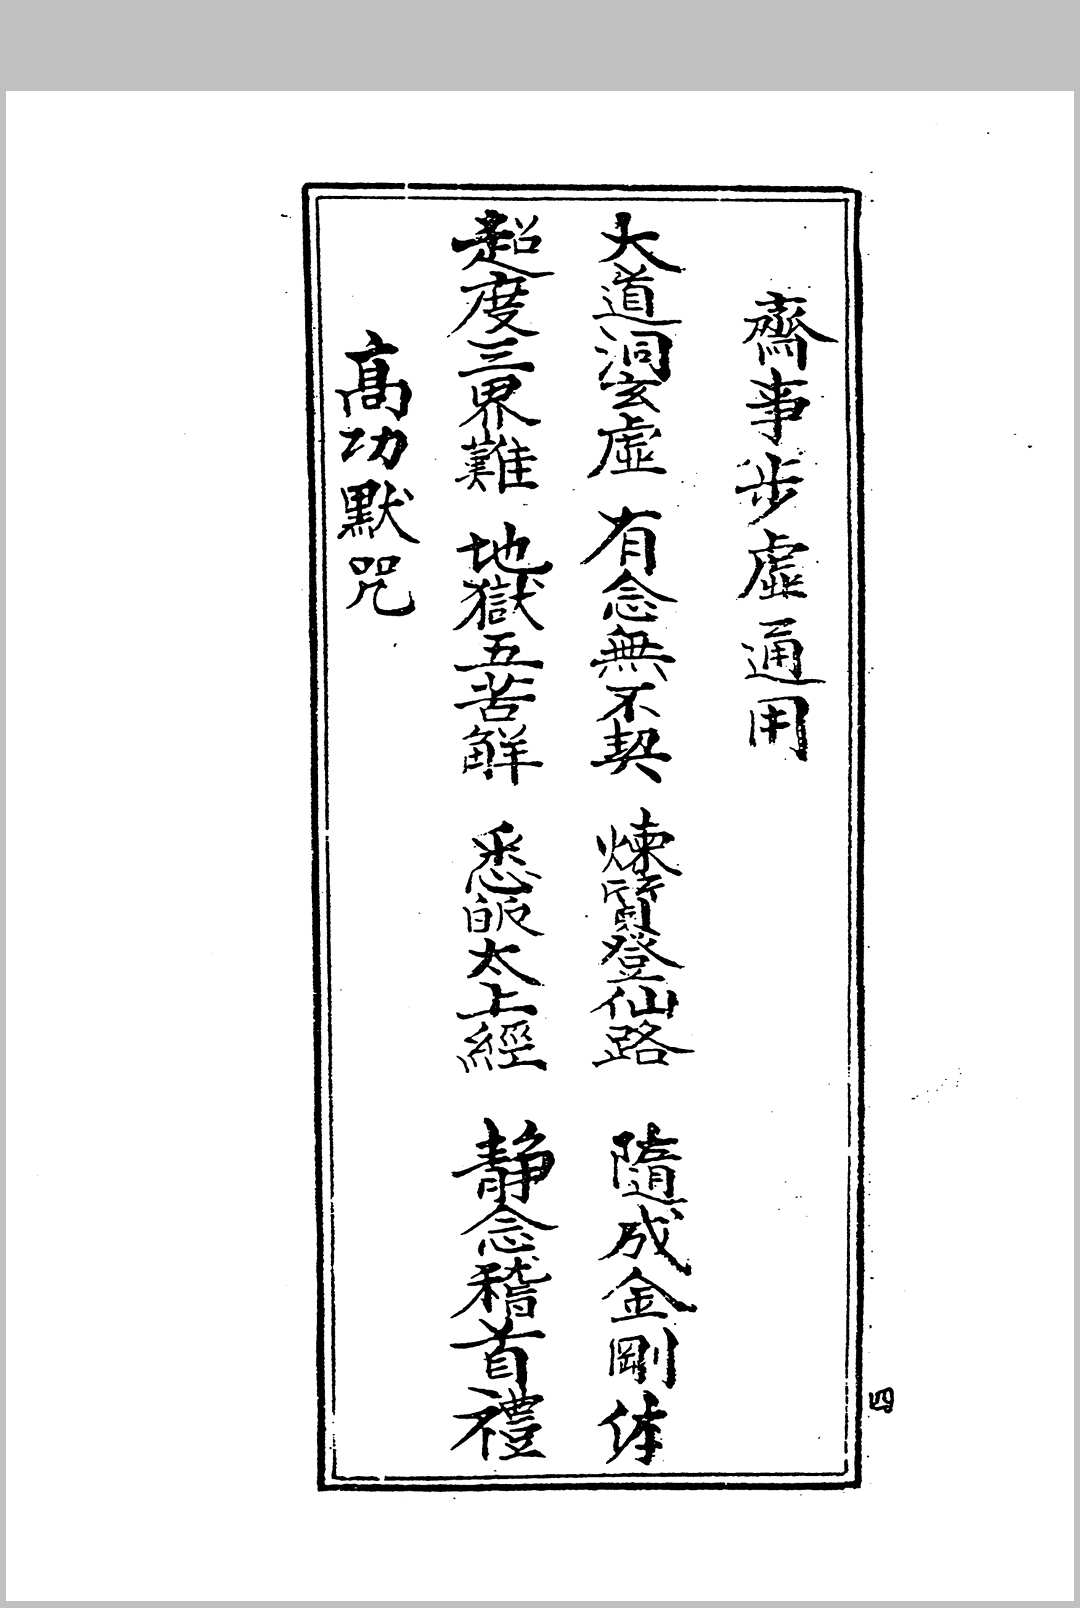 齋事步虛通用
大道洞玄虛 有念無不契 煉質登仙路 隨成金剛体
超度三界難 地獄五苦觧 悉皈太上經 静念稽首禮
高功默咒
四